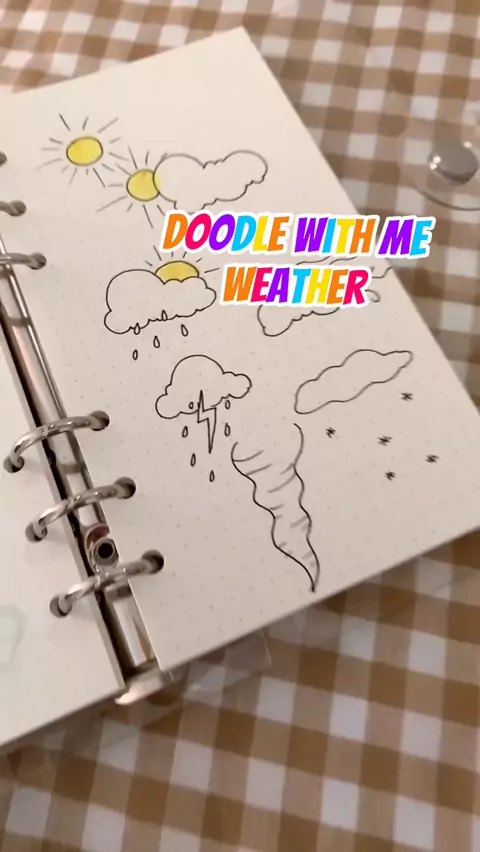 DOODLE WITH ME
WEATHER